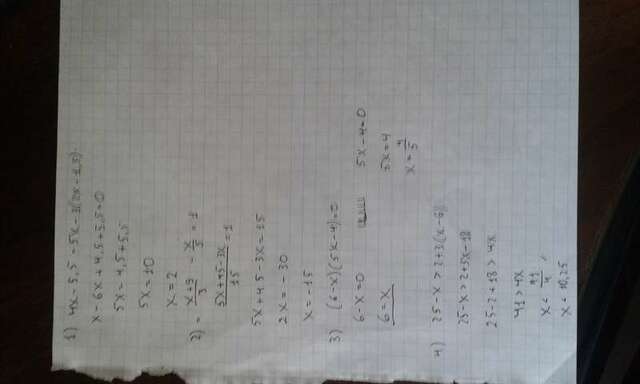 1) 4x-5,5=5x-3(2x-1,5)
x-6x+4,5+5,5=0
5x=4,5+5,5
5x=10
x=2
2) = \frac{x+9}{3} - \frac{x}{5} = 1
\frac{5x+45-3x}{15} = 1
5x+45-3x=15
2x=-30
x=-15
3) (6-x)(5x-4)=0
6-x=0 или 5x-4=0
6=x 5x=4
x=\frac{4}{5}
4) 25-x>2+3(x-6)
25-x>2+3x-18
25-2+18>4x
41>4x
x<\frac{41}{4}
x<10,25